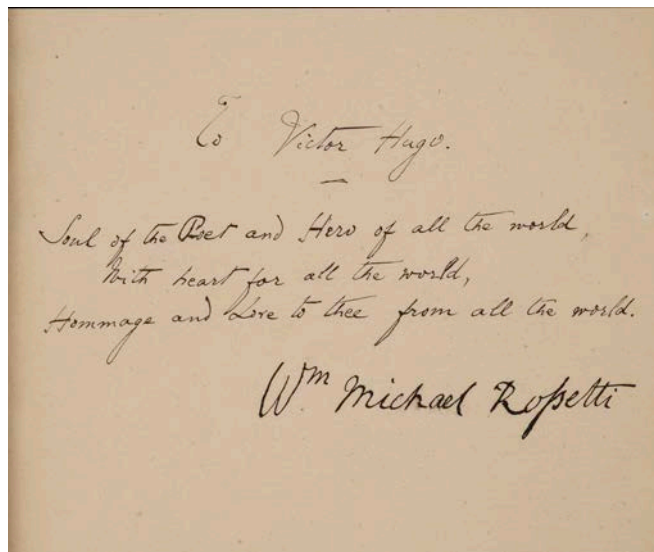 To Victor Hugo.
Soul of the Poet and Hero of all the world,
With heart for all the world,
Hommage and Love to thee from all the world.
Wm Michael Rossetti